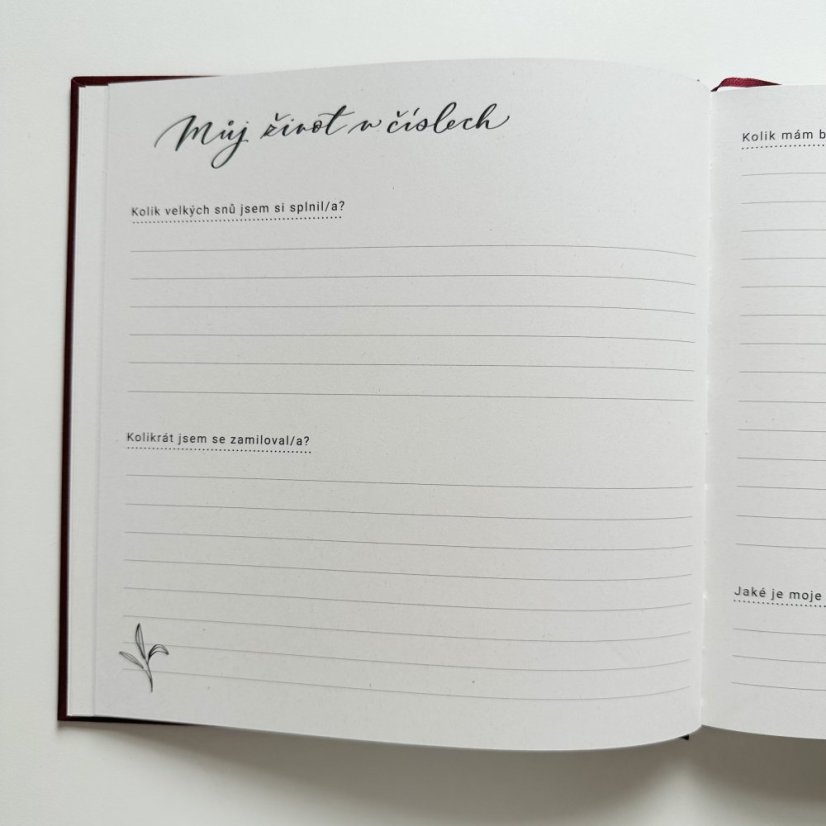 Můj život v číslech
Kolik velkých snů jsem si splnil/a?
Kolikrát jsem se zamiloval/a?
Kolik mám
Jaké je moje